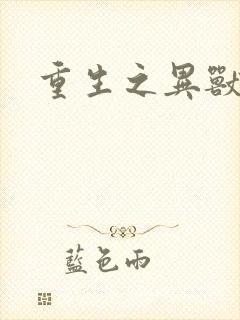 重生之異獸
藍色雨